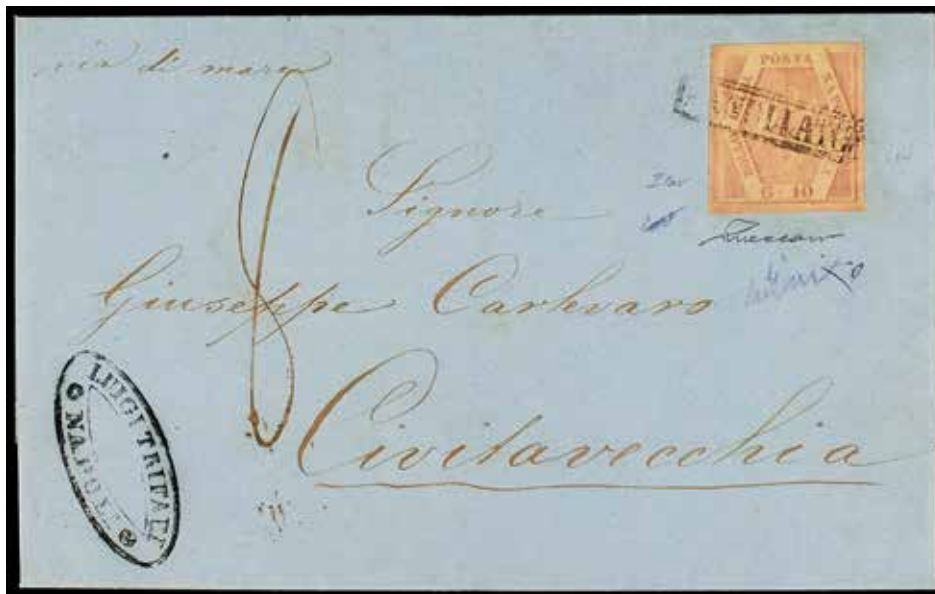 via di mare
POSTA NAP
G. 10
ANNULLATO
Signore
Giuseppe Carlevaro
Civitavecchia
LUIGI TRIFARI
NAPOLI